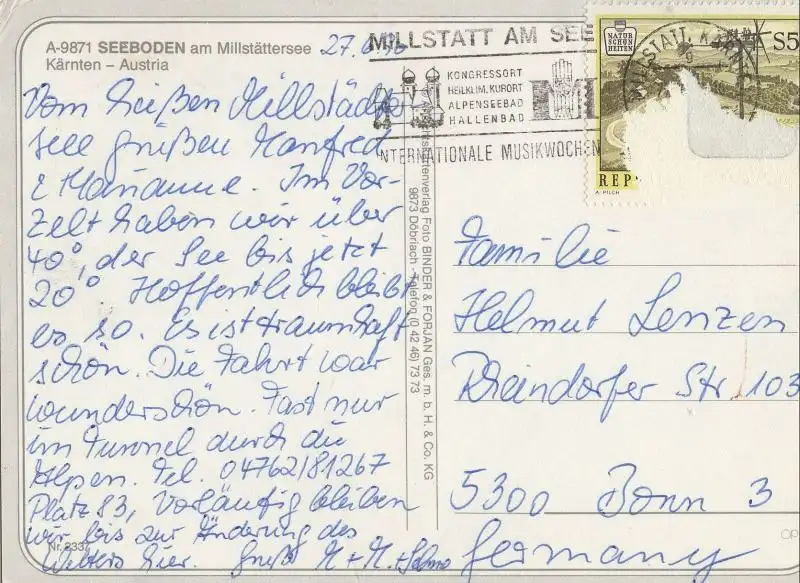 A-9871 SEEBODEN am Millstättersee
Kärnten – Austria
27.6.
Vom heißen Millstädter
see grüßen Manfred
& Marianne. Im Vor-
zelt haben wir über
40°, der See bis jetzt
20°. Hoffentlich bleibt
es so. Es ist traumhaft
schön. Die Fahrt war
wunderschön. Fast nur
im Tunnel durch die
Alpen. Tel. 04762/81267
Platz 83, Vorläufig bleiben
wir bis zur Änderung des
Wetters hier. Gruß M + M. +
Nr. 233
Ansichtskartenverlag Foto BINDER & FORJAN Ges. m. b. H. & Co. KG
9873 Döbriach - Telefon (0 42 46) 73 73
MILLSTATT AM SEE
KONGRESSORT
HEILKLIM. KURORT
ALPENSEEBAD
HALLENBAD
INTERNATIONALE MUSIKWOCHEN
NATUR
SCHÖN
HEITEN
S5
MILLSTATT, KÄRN
REP
A. PILCH
Familie
Helmut Lenzen
Rheindorfer Str. 103
5300 Bonn 3
Germany